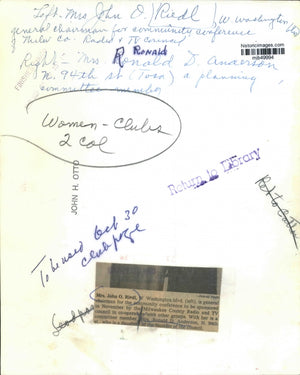 Left - Mrs John O. Riedl, W. Washington Blvd
general chairman for community conference
of Milw Co. Radio & TV Council
R RONALD
Right - Mrs Ronald D. Anderson
N. 94th st (Tosa) a planning
committee member
historicimages.com
mib49094
Women - Clubs
2 col
JOHN H. OTTO
Return to Library
To be used Oct 30
club page
Mrs. John O. Riedl, W. Washington blvd. (left), is general
chairman for the community conference to be sponsored
in November by the Milwaukee County Radio and TV
council in co-operation with other groups. With her is a
committee member, Mrs. Ronald D. Anderson, N. 94th